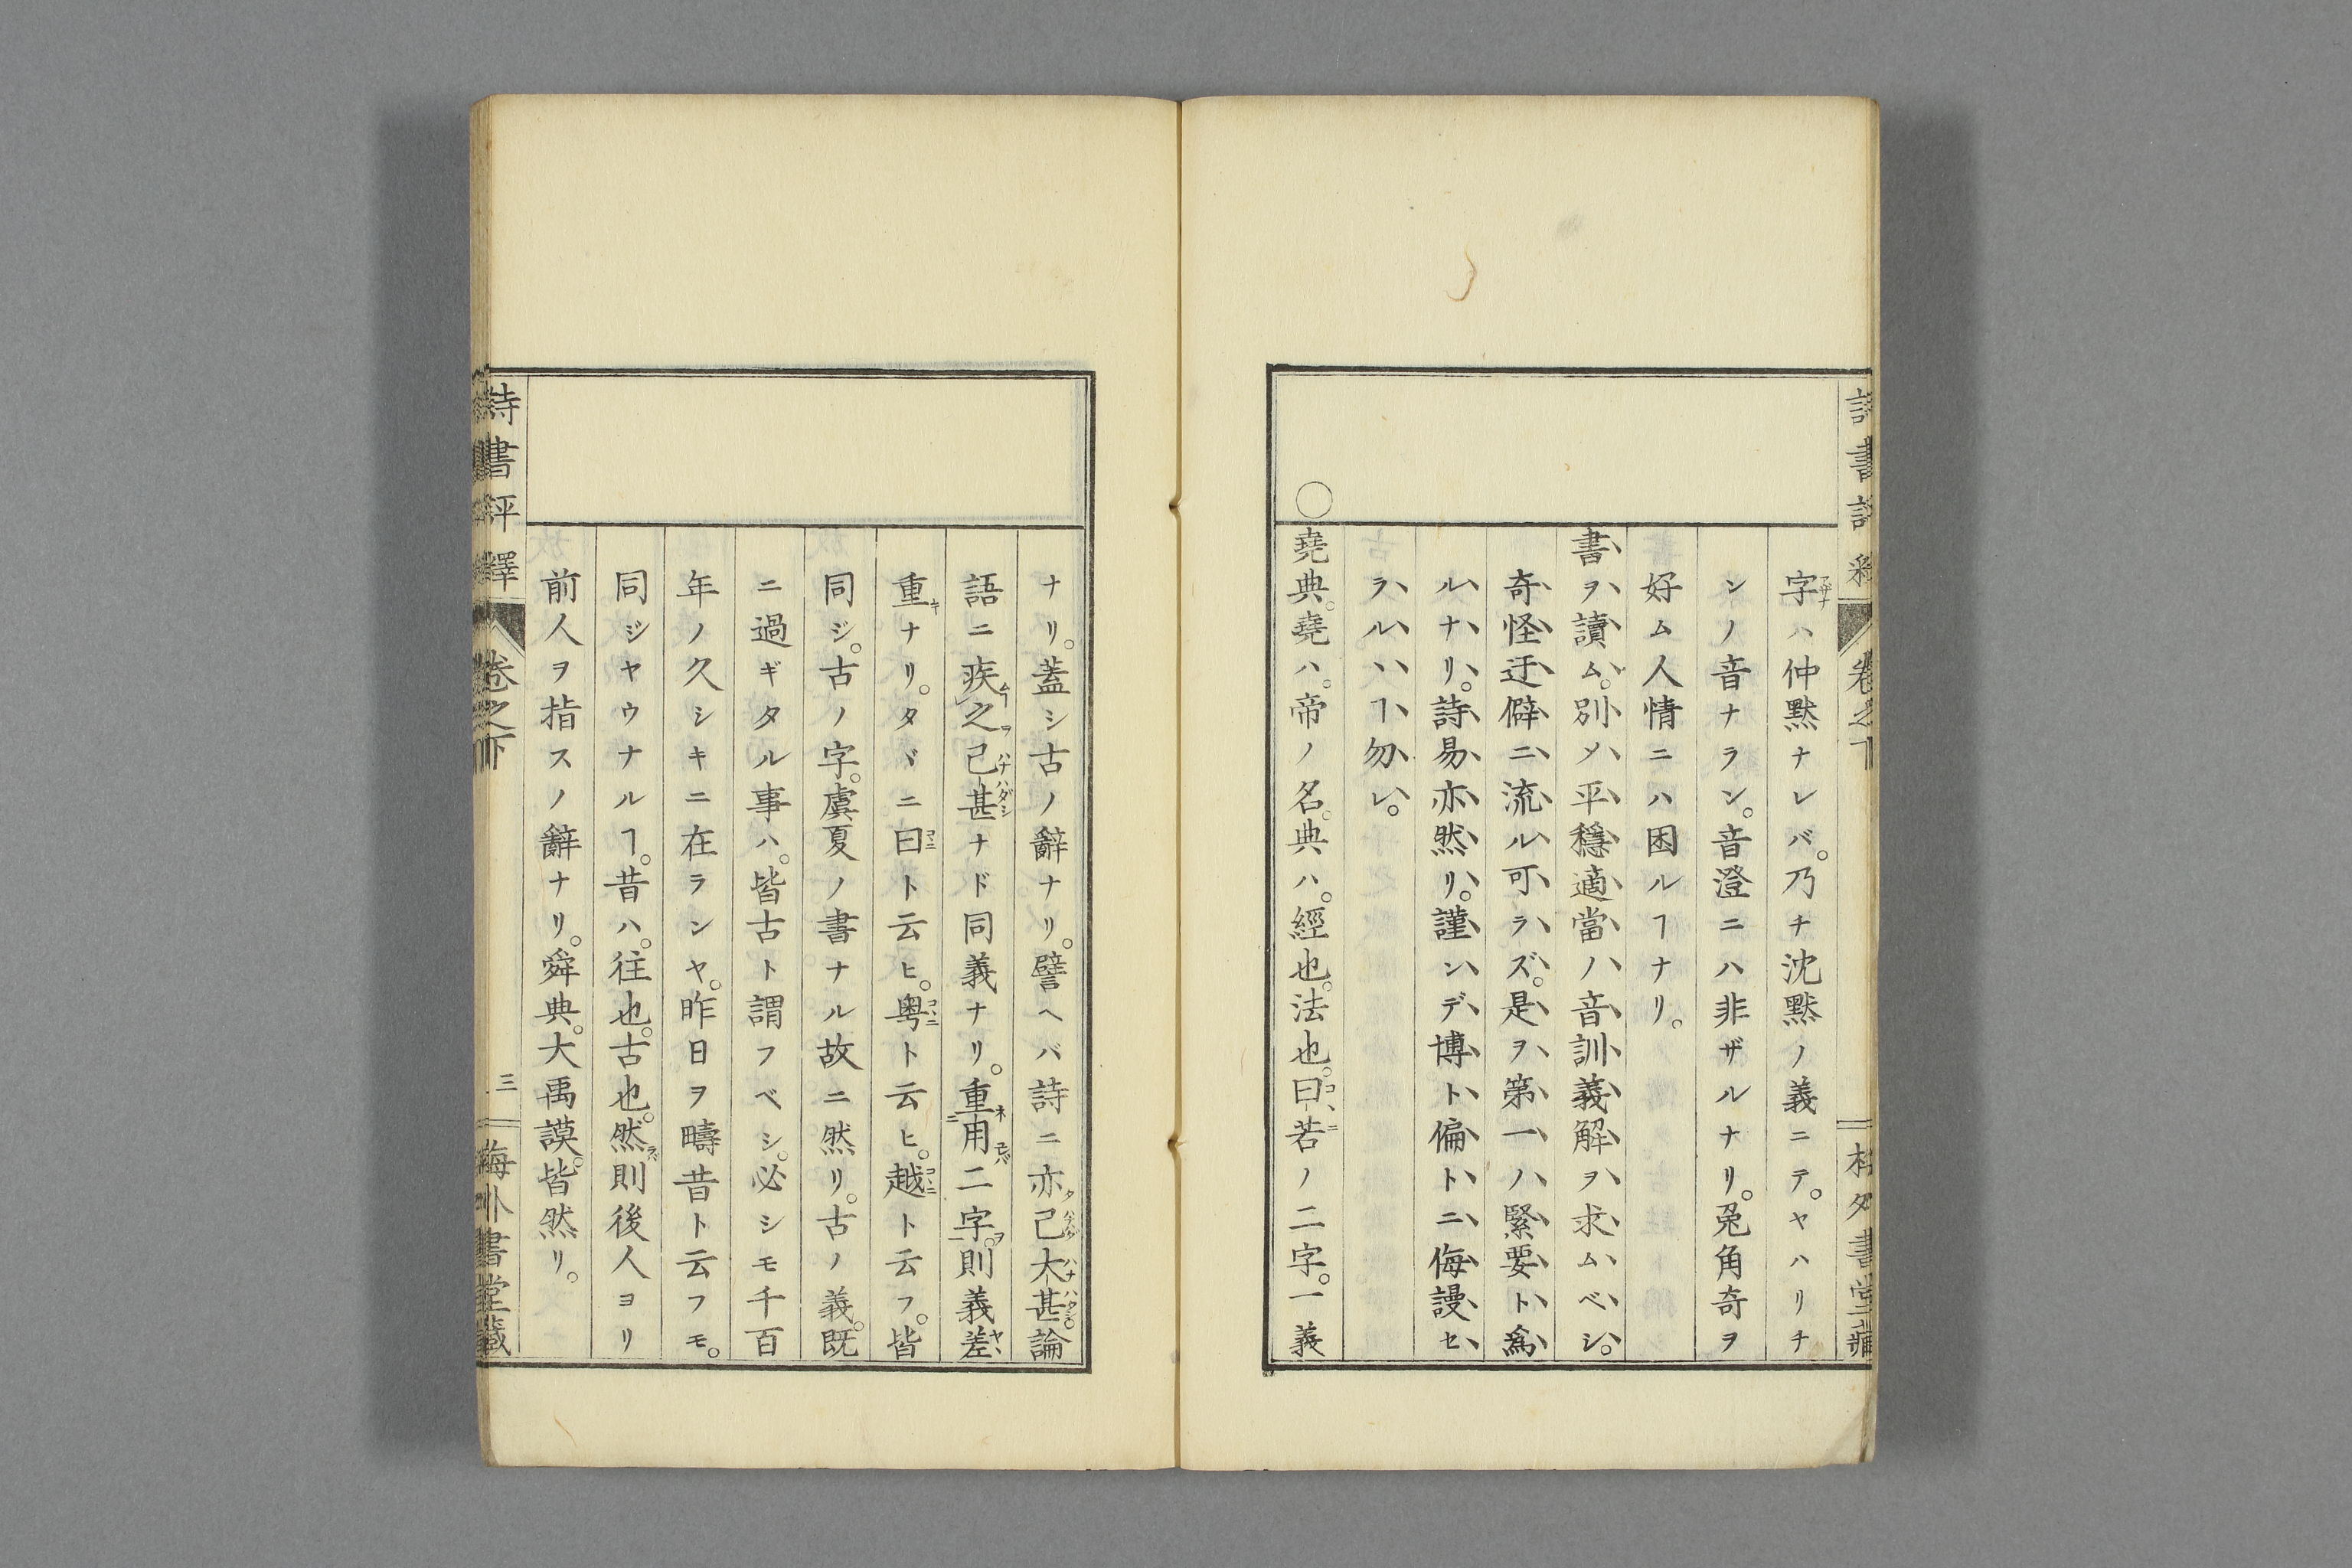 詩書評釋 卷之下
字ハ仲黙ナレバ。乃チ沈黙ノ義ニテ。ヤハリチ
ンノ音ナラン。音澄ニハ非ザルナリ。兎角奇ヲ
好ム人情ニハ困ルヿナリ。
書ヲ讀ム。別メ平穩適當ノ音訓義解ヲ求ムベシ。
奇怪迂僻ニ流ル可ラズ。是ヲ第一ノ緊要ト爲
ルナリ。詩易亦然リ。謹ンデ博ト偏トニ侮謾セ
ラルヽヿ勿レ。
○堯典。堯ハ。帝ノ名。典ハ。經也。法也。曰若ノ二字。一義
ナリ。蓋シ古ノ辭ナリ。譬ヘバ詩ニ亦已大甚論
語ニ疾之已甚ナド同義ナリ。重用二字。則義差
重ナリ。タヾニ曰ト云ヒ。粤ト云ヒ。越ト云フ。皆
同ジ。古ノ字。虞夏ノ書ナル故ニ然リ。古ノ義。既
ニ過ギタル事ハ。皆古ト謂フベシ。必シモ千百
年ノ久シキニ在ランヤ。昨日ヲ疇昔ト云フモ。
同ジヤウナルヿ。昔ハ。往也。古也。然則後人ヨリ
前人ヲ指スノ辭ナリ。舜典。大禹謨。皆然リ。
詩書評釋 卷之下 三 梅外書堂藏